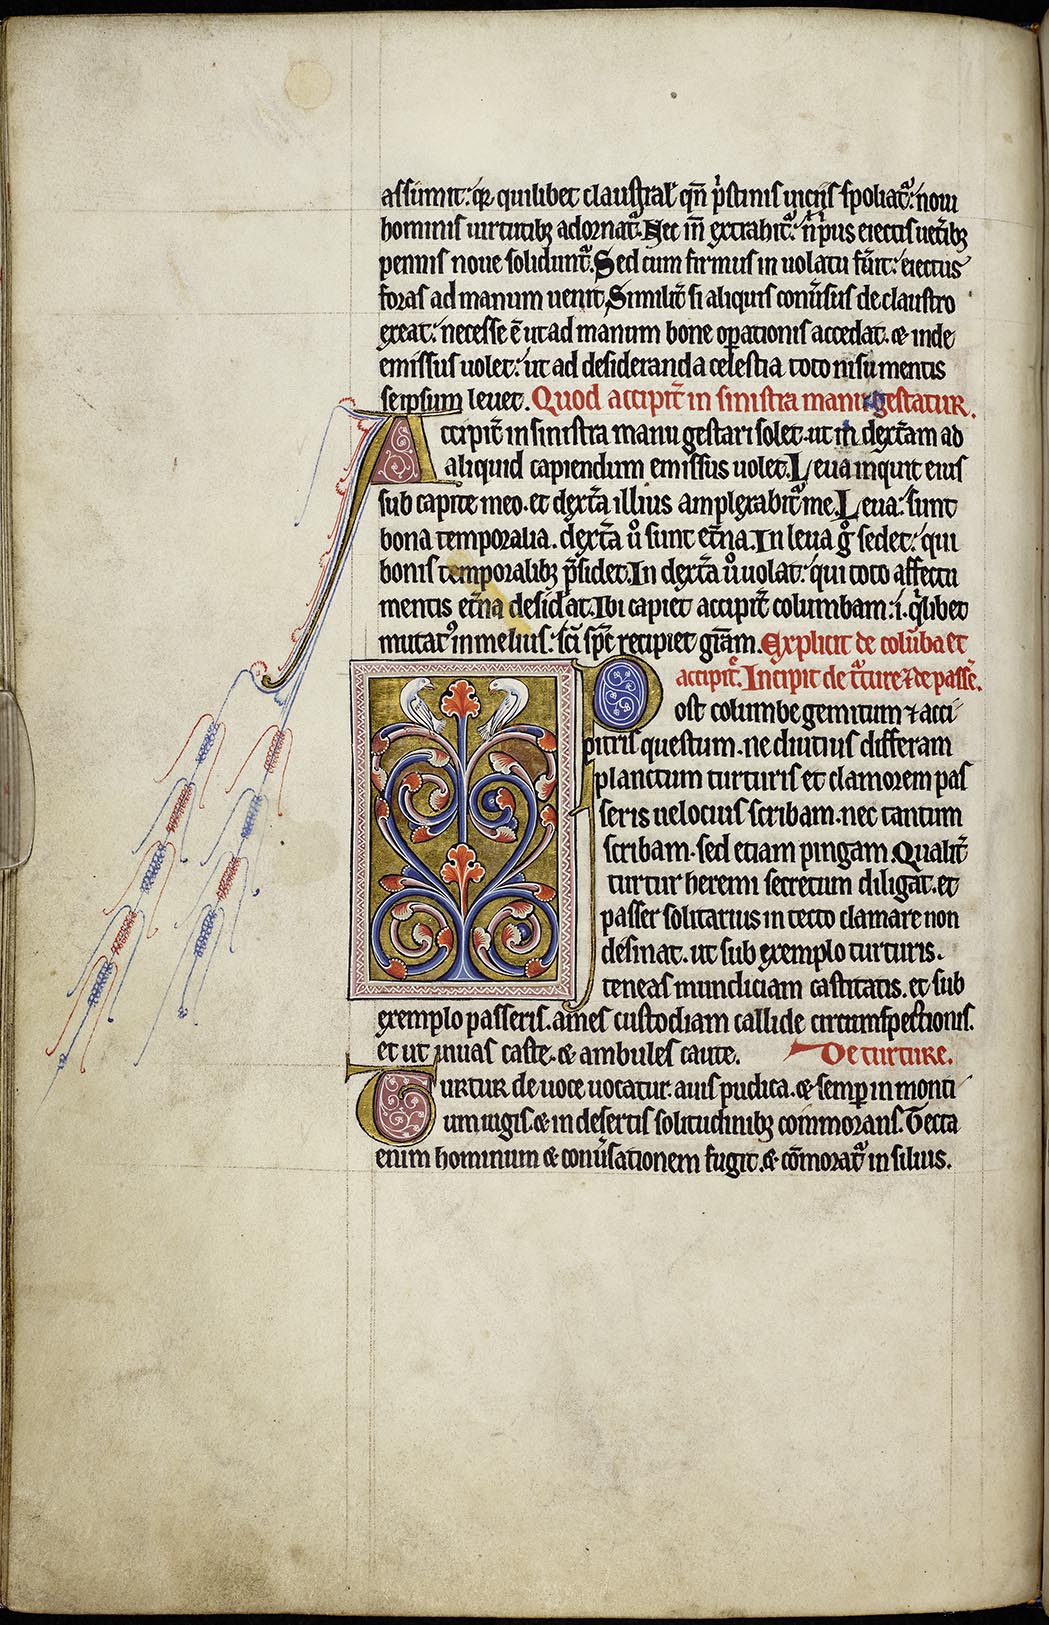 assumit: q̄ quilibet claustral' qn̄ pͥstinis uiciis spoliatᷣ: noui
hominis uirtutibꝫ adornatᷣ. Nec in̄ extrahitᷣ: n̄ pͥus eiectis uet̄ibꝫ
pennis noue solidentᷣ. Sed cum firmus in uolatu fūit: eiectus
foras ad manum uenit, Similit̄ si aliquis conuͥsus de claustro
exeat: necesse ē ut ad manum bone oꝑationis accedat. & inde
emissus uolet: ut ad desideranda celestia toto nisu mentis
seipsum leuet. Quod accipit̄ in sinistra manu gestatur.
Accipit̄ in sinistra manu gestari solet. ut in dext̄am ad
aliquid capiendum emissus uolet. Leua inquit eius
sub capite meo. et dext̄a illius amplexabitᷣ me. Leua: sunt
bona temporalia. dext̄a uͦ sunt et̄na. In leua gͦ sedet: qui
bonis temporalibꝫ p̄sidet. In dext̄a uͦ uolat: qui toto affectu
mentis et̄na desid̄at. Ibi capiet accipit̄ columbam: .i. qͥlibet
mutatꝰ in melius: sc̄i sp̄c recipiet gr̄am. Explicit de colūba et
accipit̄. Incipit de tᷣture ⁊ de passe̅.
Post columbe gemitum ⁊ acci
pitris questum. ne diutius differam
planctum turturis et clamorem pas
seris uelocius scribam. nec tantum
scribam. sed etiam pingam. Qualit̄
turtur heremi secretum diligat. et
passer solitarius in tecto clamare non
desinat. ut sub exemplo turturis.
teneas mundiciam castitatis. et sub
exemplo passeris. ames custodiam callide circumspectionis.
et ut uiuas caste. & ambules caute. De turture.
Turtur de uoce uocatur. auis pudica. & semꝑ in monti
um iugis. & in desertis solitudinibꝫ commorans. Tecta
enim hominum & conuͥsationem fugit. & com̄oratᷣ in siluis.